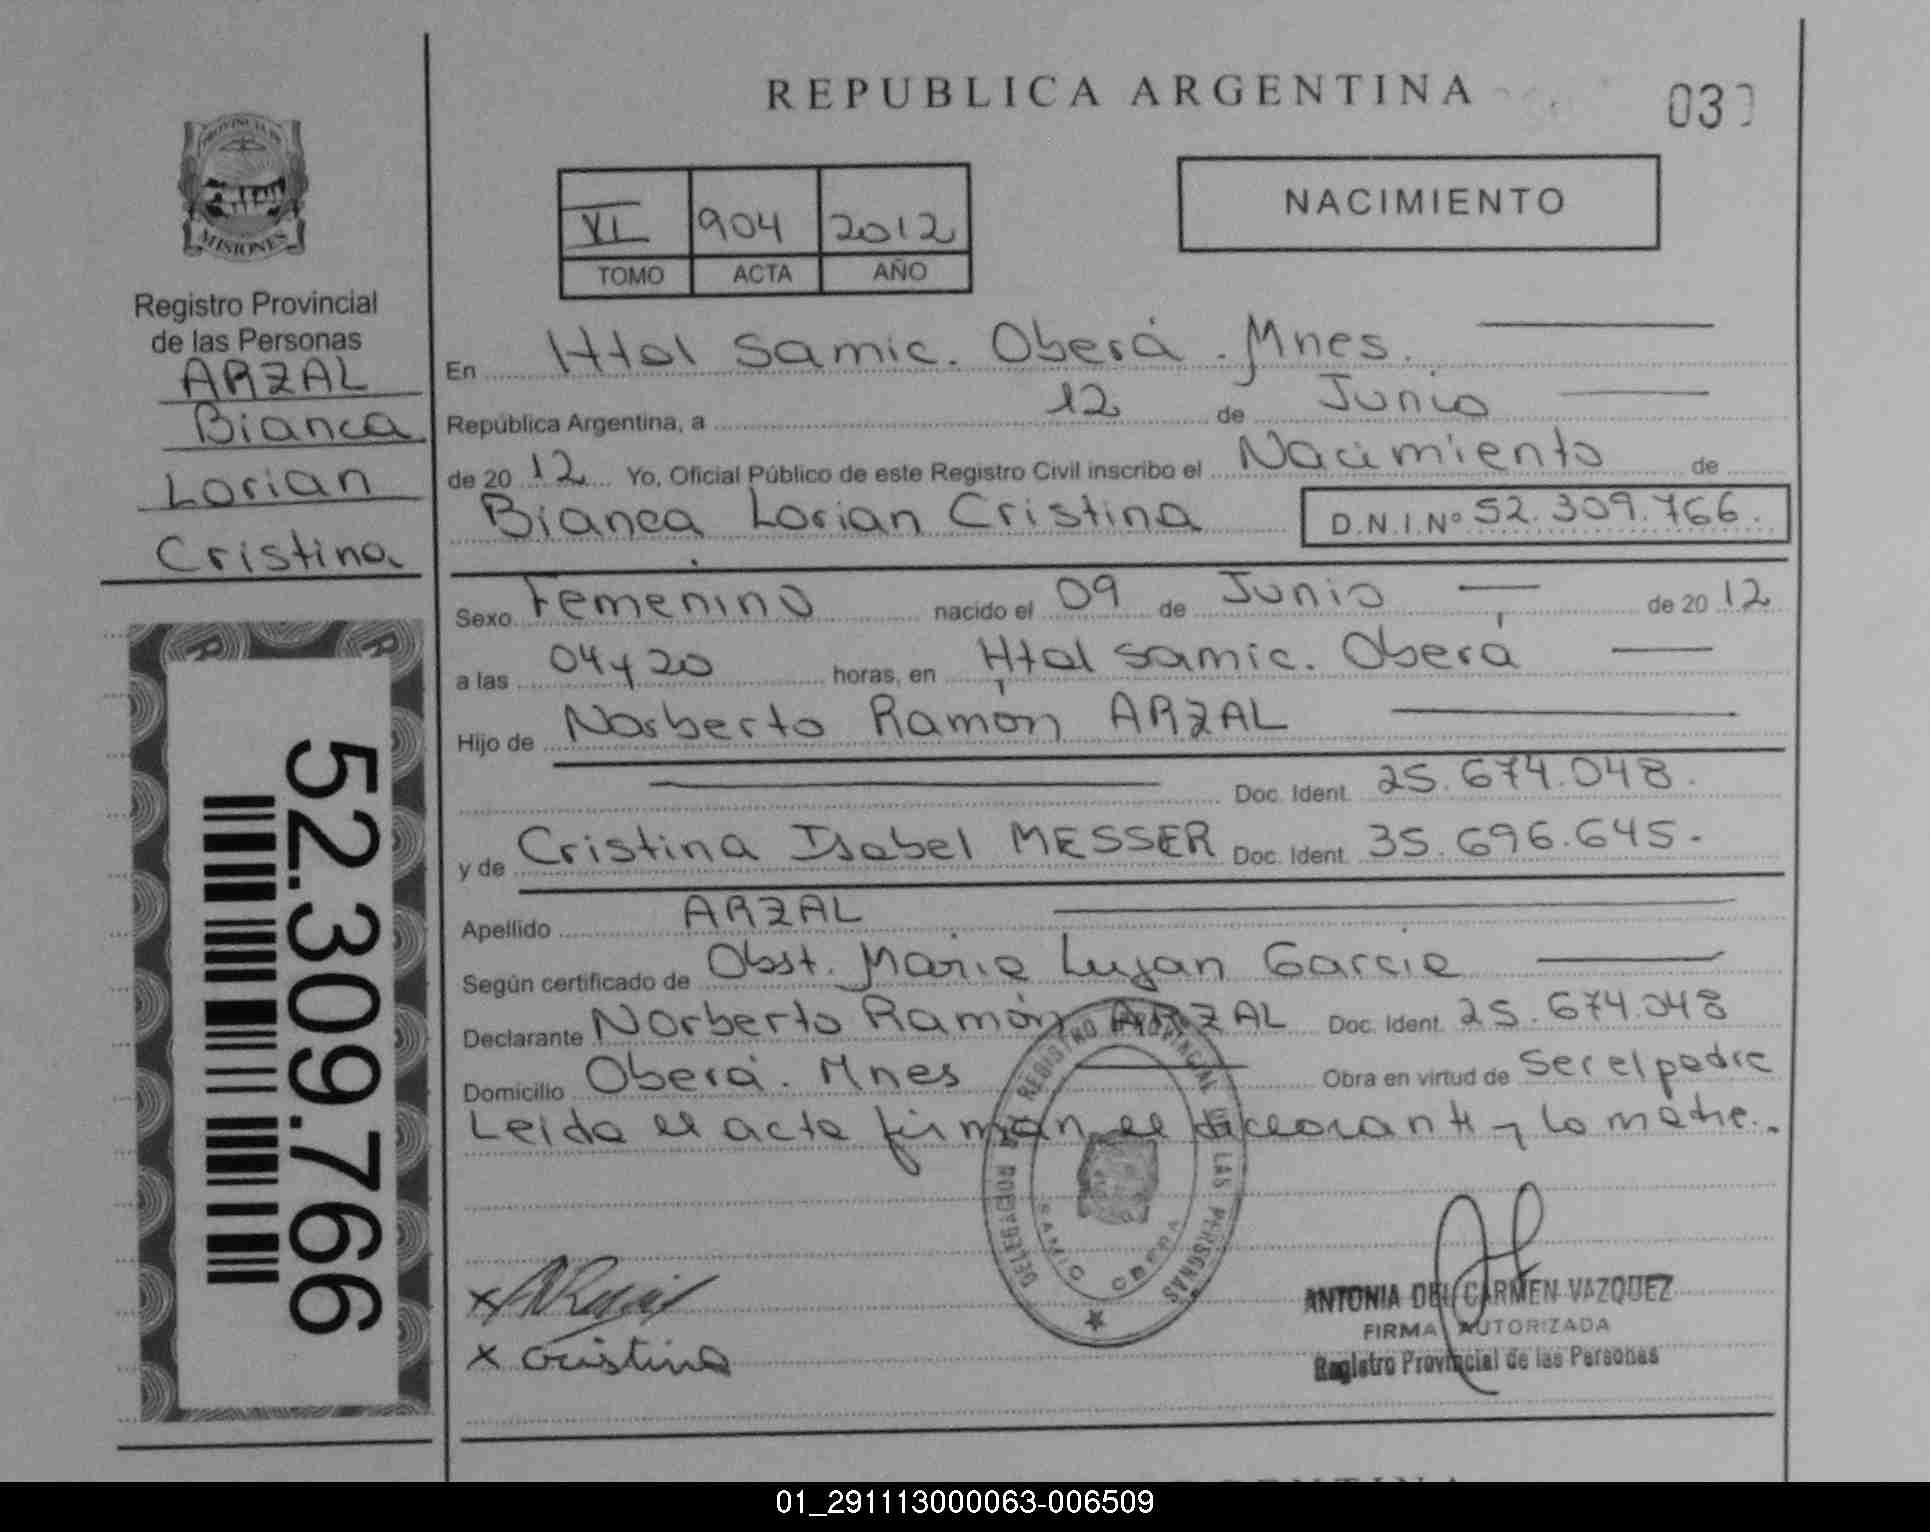 REPUBLICA ARGENTINA
03
PROVINCIA DE
MISIONES
Registro Provincial
de las Personas
ARZAL
Bianca
Lorian
Cristina
52.309.766
NACIMIENTO
VI 904 2012
TOMO ACTA AÑO
En Htal Samic. Oberá. Mnes.
República Argentina, a 12 de Junio
de 20 12 Yo, Oficial Público de este Registro Civil inscribo el Nacimiento de
Bianca Lorian Cristina D.N.I.Nº 52.309.766.
Sexo Femenino nacido el 09 de Junio de 20 12
a las 04 y 20 horas, en Htal Samic. Oberá
Hijo de Norberto Ramón ARZAL
Doc. Ident. 25.674.048.
y de Cristina Isabel MESSER Doc. Ident. 35.696.645.
Apellido ARZAL
Según certificado de Obst. Maria Lujan Garcia
Declarante Norberto Ramón ARZAL Doc. Ident. 25.674.048
Domicilio Oberá. Mnes Obra en virtud de Ser el padre
Leida el acta firman el declarante y la madre.
REGISTRO PROVINCIAL DE LAS PERSONAS
SAMIC OBERA
x
x Cristina
ANTONIA DEL CARMEN VAZQUEZ
FIRMA AUTORIZADA
Registro Provincial de las Personas
01_291113000063-006509